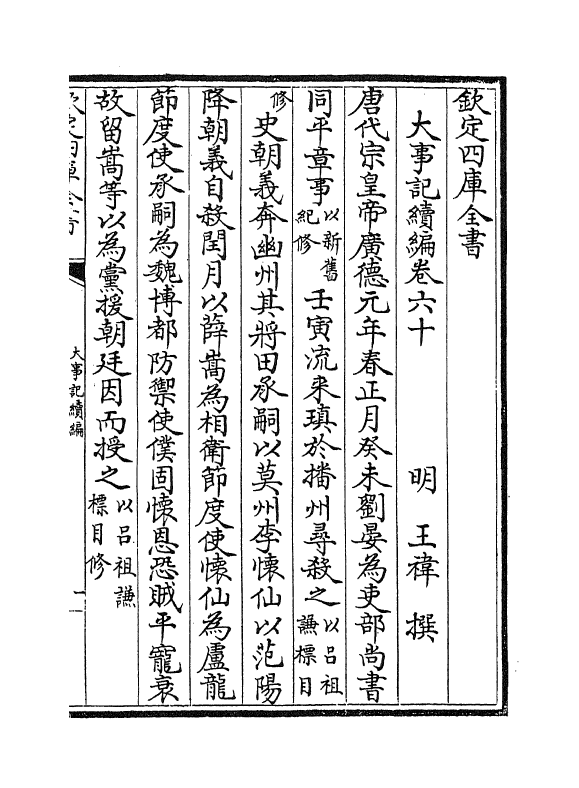 欽定四庫全書
大事記續編卷六十
明 王禕 撰
唐代宗皇帝廣德元年春正月癸未劉晏為吏部尚書
同平章事以新舊紀修壬寅流來瑱於播州尋殺之以吕祖謙標目
修史朝義奔幽州其將田承嗣以莫州李懷仙以范陽
降朝義自殺閏月以薛嵩為相衛節度使懷仙為盧龍
節度使承嗣為魏博都防禦使僕固懷恩恐賊平寵衰
故留嵩等以為黨援朝廷因而授之以吕祖謙標目修
欽定四庫全書
大事記續編
一